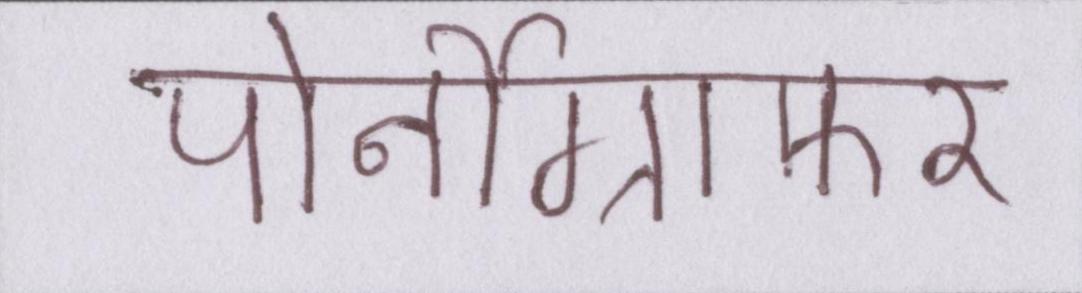 पोर्नोग्राफर